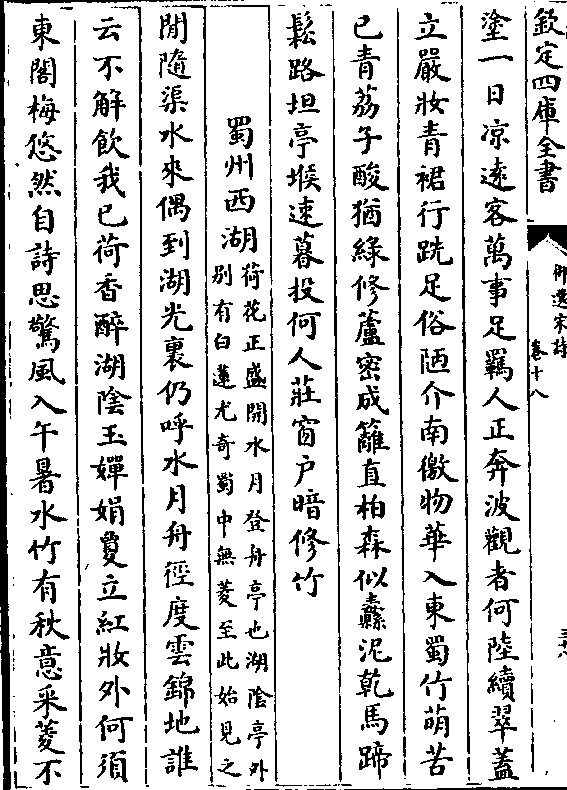 欽定四庫全書
御選宋詩
卷十八
塗一日凉遠客萬事足羈人正奔波觀者何陸續翠蓋
立嚴妝青裙行跣足俗陋介南徼物華入東蜀竹萌苦
已青荔子酸猶綠修蘆密成籬直柏森似纛泥乾馬蹄
鬆路坦亭堠速暮投何人莊窗户暗修竹
蜀州西湖
荷花正盛開水月登舟亭也湖陰亭外
别有白蓮尤奇蜀中無菱至此始見之
閒隨渠水來偶到湖光裏仍呼水月舟徑度雲錦地誰
云不解飲我已荷香醉湖陰玉嬋娟夐立紅妝外何須
東閣梅悠然自詩思驚風入午暑水竹有秋意采菱不